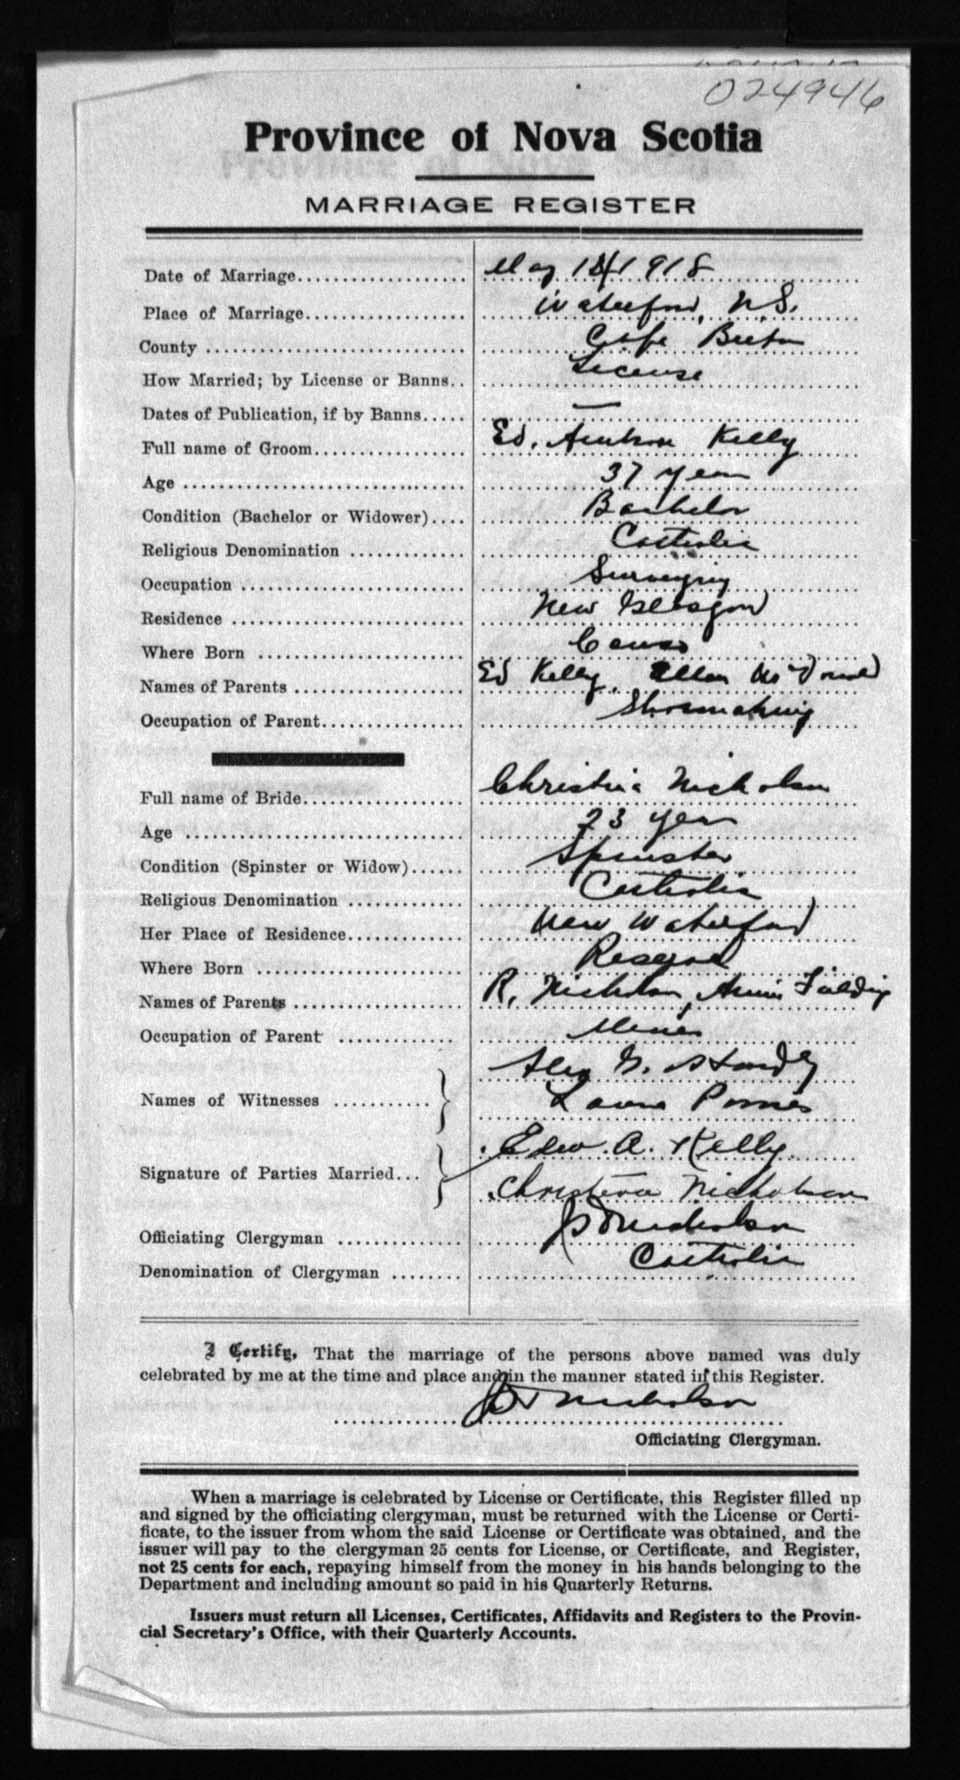 024946
Province of Nova Scotia
MARRIAGE REGISTER
Date of Marriage.................... May 14 1918
Place of Marriage................... Waterford, N.S.
County ............................. Cape Breton
How Married; by License or Banns.. License
Dates of Publication, if by Banns..... —
Full name of Groom.................. Ed. Kelly
Age ................................ 37 year
Condition (Bachelor or Widower).... Bachelor
Religious Denomination ............. Catholic
Occupation ......................... Surveying
Residence .......................... New Glasgow
Where Born ......................... Canso
Names of Parents ................... Ed Kelly, Ellen McDonald
Occupation of Parent................ Shoemaking
Full name of Bride.................. Christina Nicholson
Age ................................ 23 year
Condition (Spinster or Widow)...... Spinster
Religious Denomination ............. Catholic
Her Place of Residence............. New Waterford
Where Born ......................... Reserve
Names of Parents ................... R. Nicholson, Annie
Occupation of Parent ............... Miner
Names of Witnesses ...........
Signature of Parties Married... Edw. A. Kelly
Christina Nicholson
Officiating Clergyman .............. Nicholson
Denomination of Clergyman ........ Catholic
I Certify, That the marriage of the persons above named was duly
celebrated by me at the time and place and in the manner stated in this Register.
Nicholson
Officiating Clergyman.
When a marriage is celebrated by License or Certificate, this Register filled up
and signed by the officiating clergyman, must be returned with the License or Certi-
ficate, to the issuer from whom the said License or Certificate was obtained, and the
issuer will pay to the clergyman 25 cents for License, or Certificate, and Register,
not 25 cents for each, repaying himself from the money in his hands belonging to the
Department and including amount so paid in his Quarterly Returns.
Issuers must return all Licenses, Certificates, Affidavits and Registers to the Provin-
cial Secretary's Office, with their Quarterly Accounts.